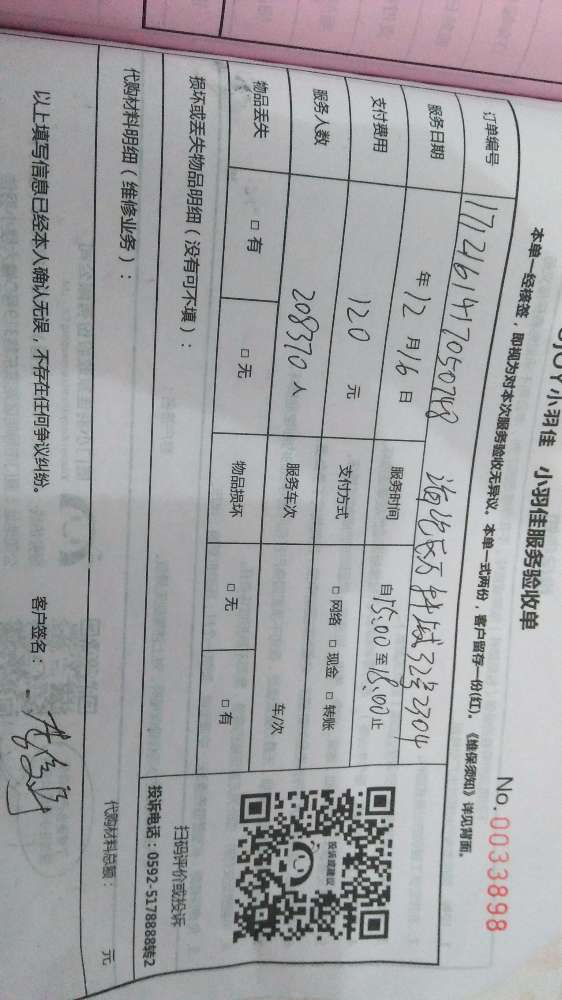 小羽佳 小羽佳服务验收单
No. 0033898
本单一经接签，即视为对本次服务验收无异议。本单一式两份，客户留存一份(红)。《维保须知》详见背面。
订单编号 1712161417050748 32号2704
服务日期 年 12 月 16 日 服务时间 自 15:00 至 18:00 止
支付费用 120 元 支付方式 □ 网络 □ 现金 □ 转账
服务人数 208370 人 服务车次 车/次
物品丢失 □ 有 □ 无 物品损坏 □ 无 □ 有
投诉或建议
扫码评价或投诉
投诉电话：0592-5178888转2
损坏或丢失物品明细（没有可不填）：
代购材料明细（维修业务）：
代购材料总额： 元
以上填写信息已经本人确认无误，不存在任何争议纠纷。 客户签名：